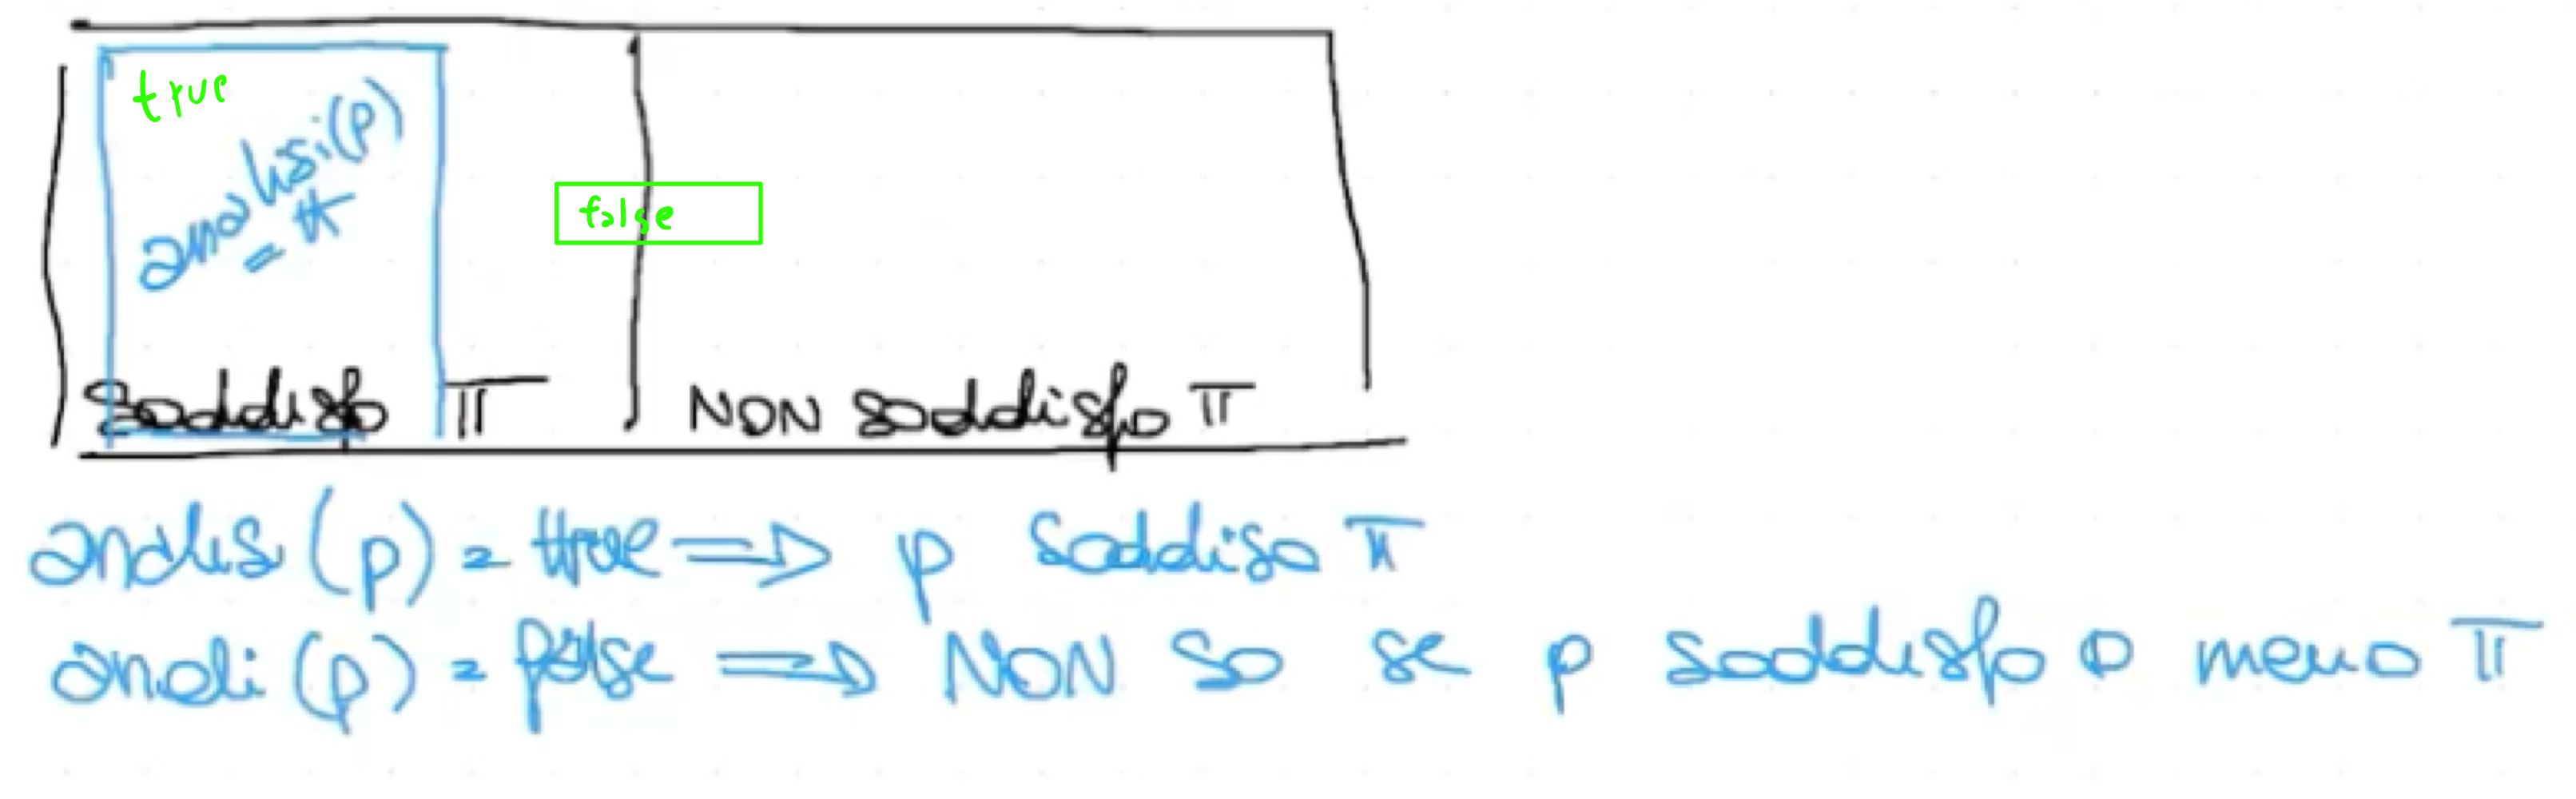 true
analisi(p)
= tt
false
Soddisfa π
NON soddisfa π
analisi (p) = true ⟹ p Soddisfa π
anali (p) = false ⟹ NON so se p soddisfa o meno π